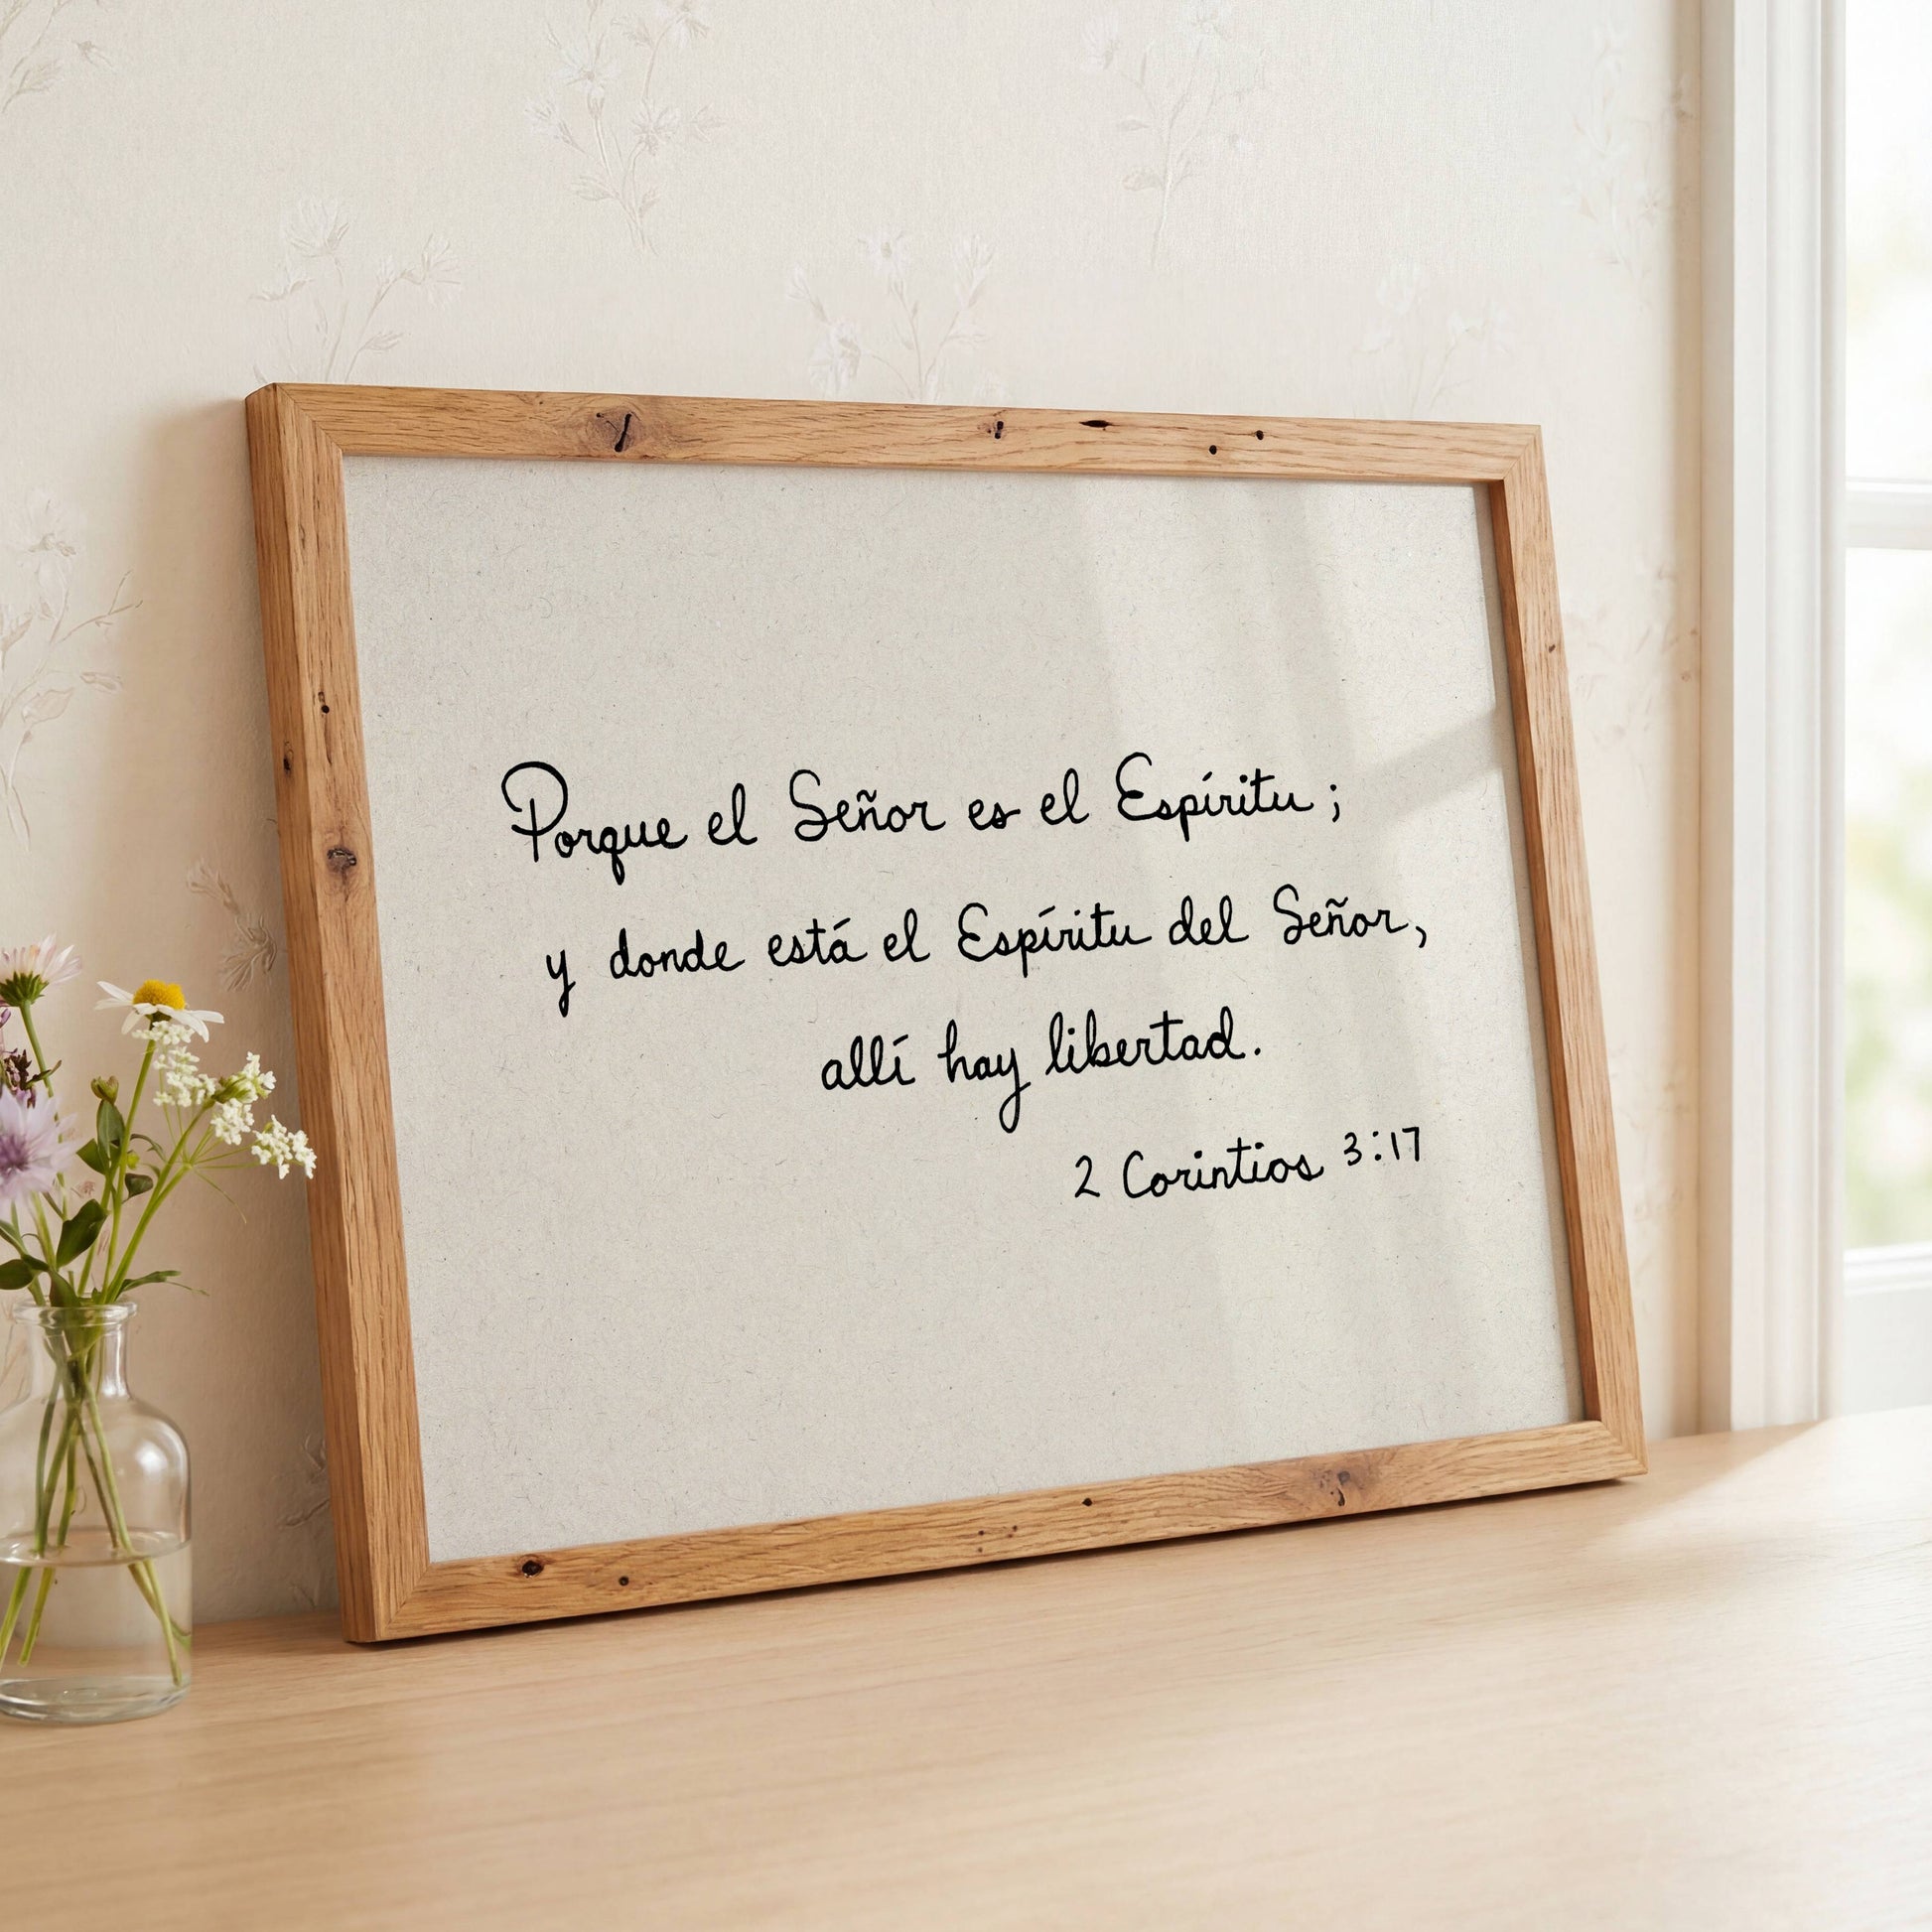 Porque el Señor es el Espíritu;
y donde está el Espíritu del Señor,
allí hay libertad.
2 Corintios 3:17